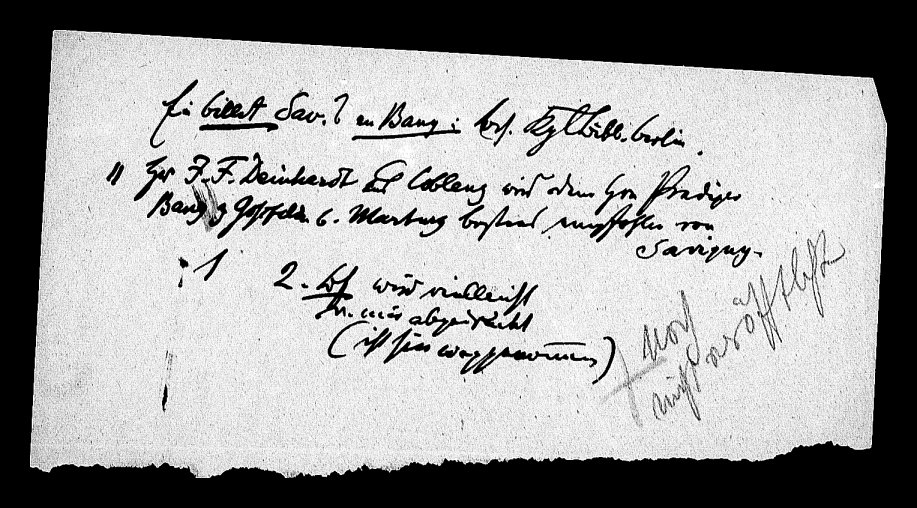 Ein billett Sav.? an Bang: bes. Kgl. bibl. berlin.
" Hr J. F. Deinhardt aus Coblenz wird dem Hrn Prediger
Bang z Goßfelden b. Marburg bestens empfohlen von
Savigny.
1
2. wird vielleicht
abgedruckt
(ist hier weggenommen)
noch
nicht veröffentlicht